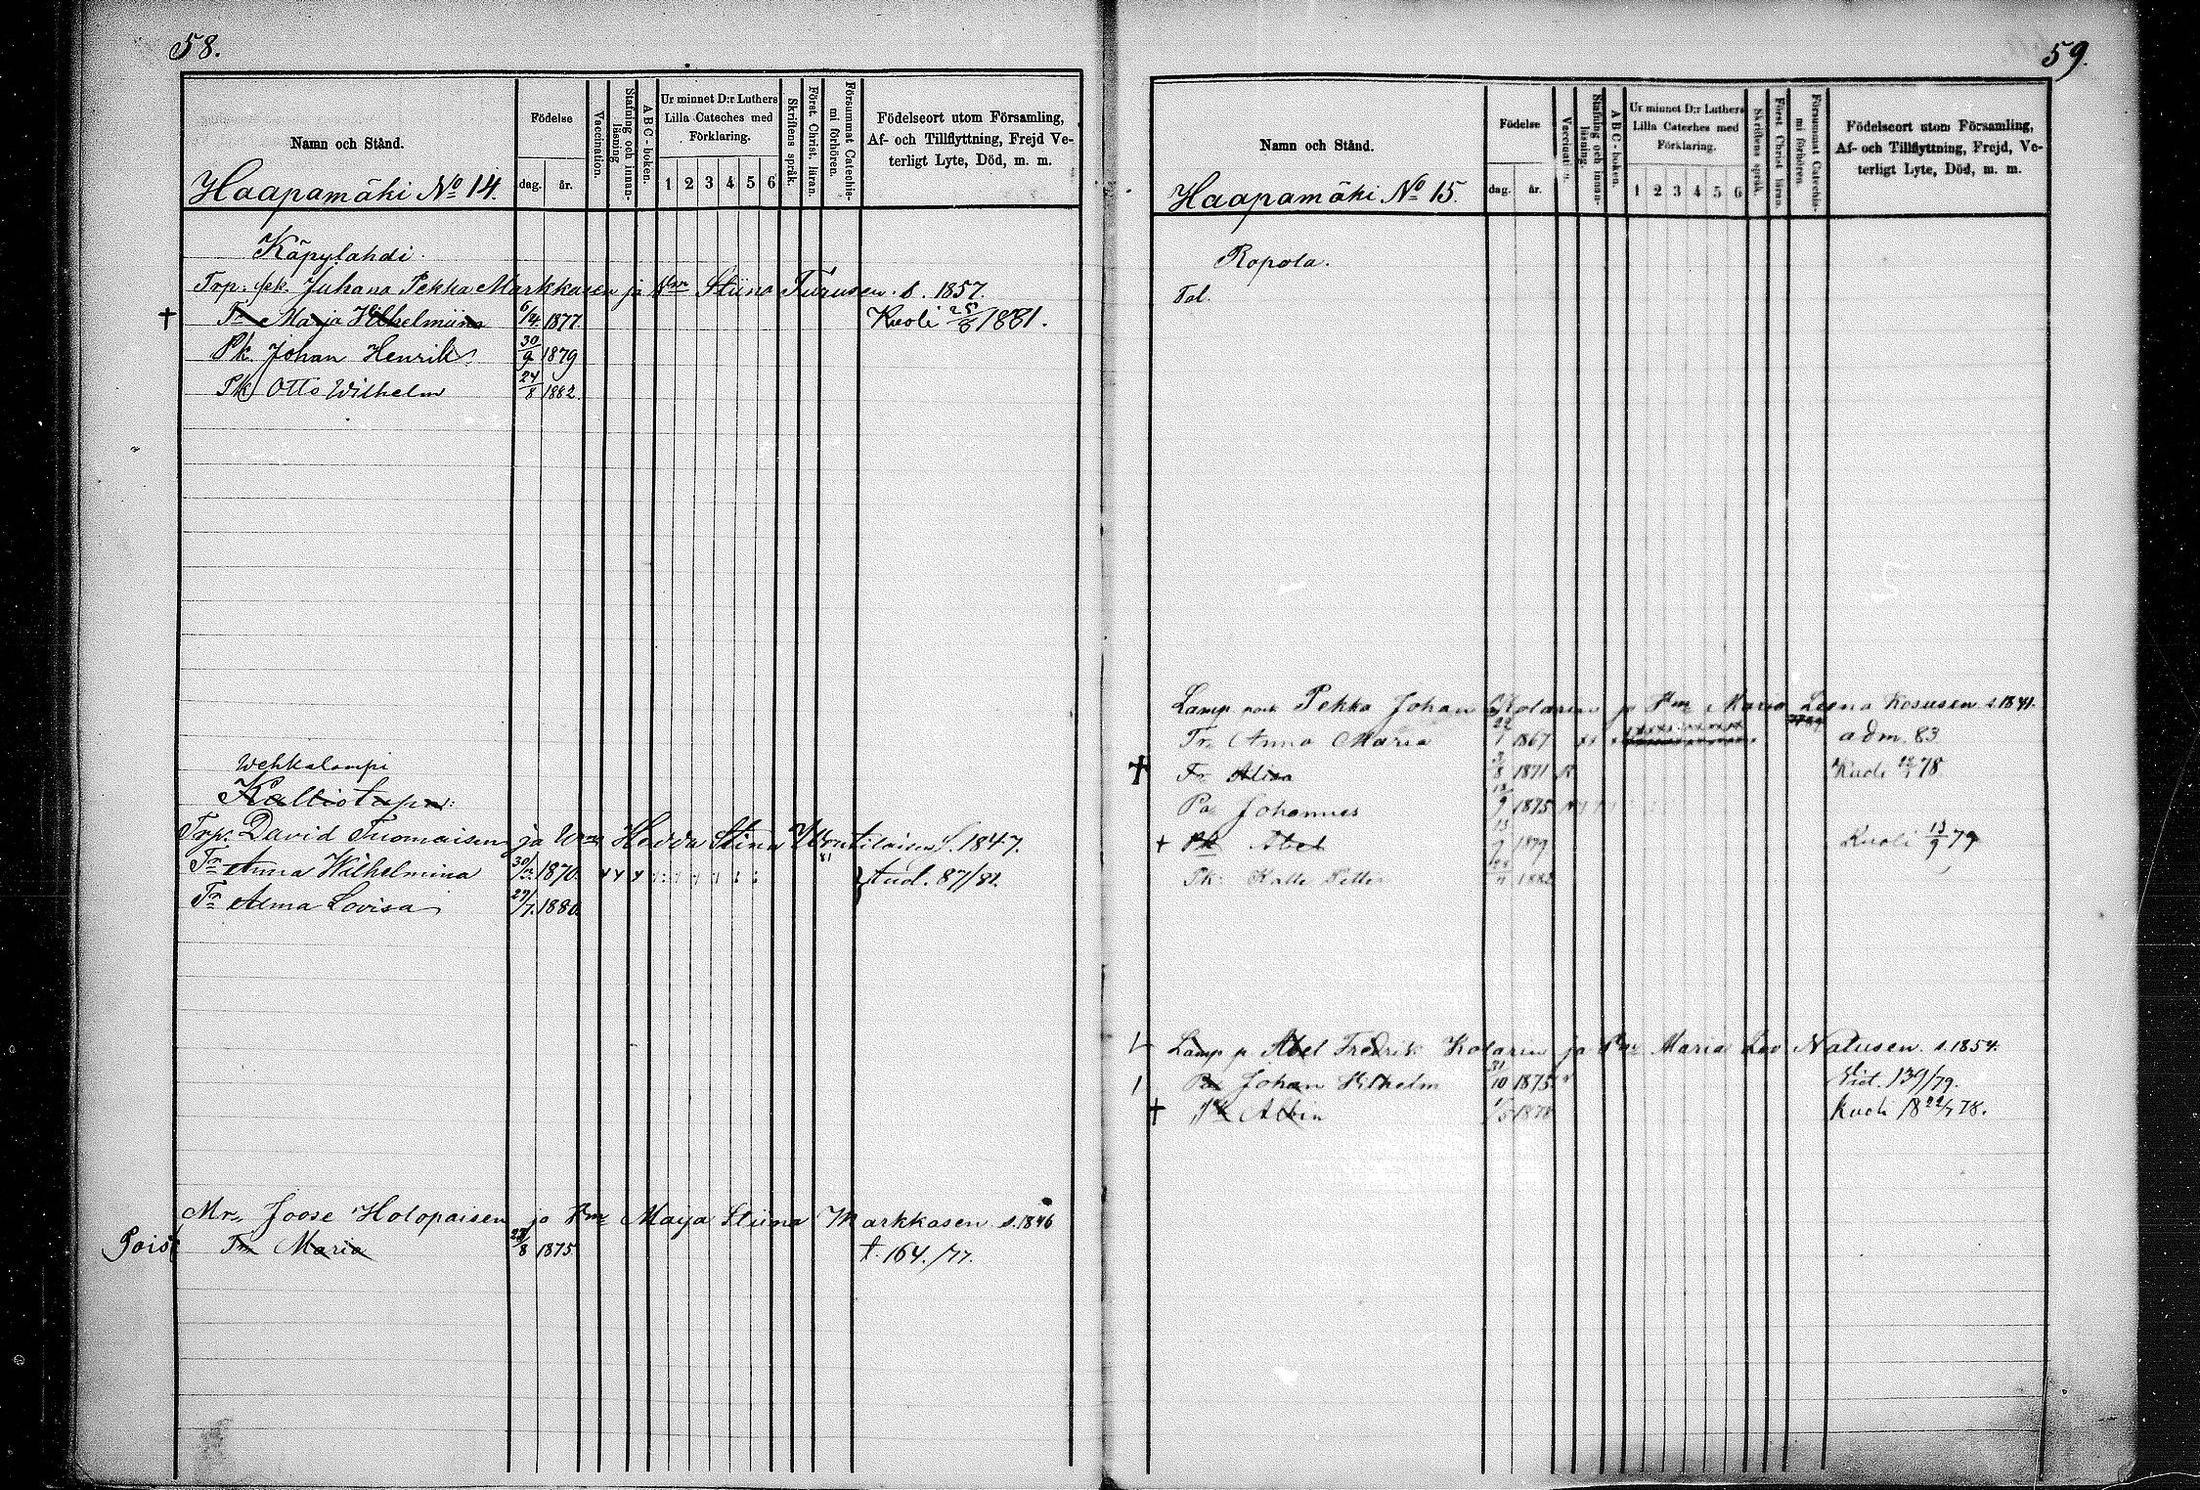 58.
Namn och Stånd.
Födelse
dag. år.
Vaccination.
Stafning och innanläsning
ABC-boken.
Ur minnet D:r Luthers
Lilla Cateches med
Förklaring.
1 2 3 4 5 6
Skriftens språk.
Först. Christ. läran.
Försummat Catechismi förhören.
Födelseort utom Församling,
Af- och Tillflyttning, Frejd Ve-
terligt Lyte, Död, m. m.
Haapamäki No 14.
Käpylahdi.
Trp. pk. Juhana Pekka Markkasen ja Vm Stiina Turusen. s. 1857.
† Tr Marja Wilhelmiina 1877. Kuoli 25/8 1881.
Pk. Johan Henrik 30/9 1879
Pk Otto Wilhelm 24/8 1882.
Wehkalampi
Kalliotupa:
Trp. David Tuomaisen ja Wm Hedda Stina S. 1847.
Tr Anna Wilhelmina 1870. Aud. 87/82.
Tr Alma Lovisa 1880.
Mr. Joose Holopaisen ja Vm Maija Stiina Markkasen s. 1846
Pois Tr Maria 8 1875. †. 164./77.
59.
Namn och Stånd.
Födelse
dag. år.
Vaccination.
Stafning och innanläsning.
ABC-boken.
Ur minnet D:r Luthers
Lilla Cateches med
Förklaring.
1 2 3 4 5 6
Skriftens språk
Först. Christ läran.
Försummat Catechismi förhören.
Födelseort utom Församling,
Af- och Tillflyttning, Frejd, Ve-
terligt Lyte, Död, m. m.
Haapamäki No 15.
Ropola.
Tal.
Lamp. Pekka Johan Kolarin ja Vm Maria Leena Kosusen s. 1841.
Tr. Anna Maria 22/1 1867 adm. 83
† Tr Alisa 1871 Kuoli 78
Po Johannes 1875
† Pk Abel 13/9 1879 Kuoli 13/9 79
Pk. Kalle Petter 1882
Lamp p Abel Fredrik Kolarin ja Vm Maria Natusen. s. 1854.
Po Johan Wilhelm 31/10 1875 139/79.
† Pk Albin 1878 Kuoli 18 22/7 78.